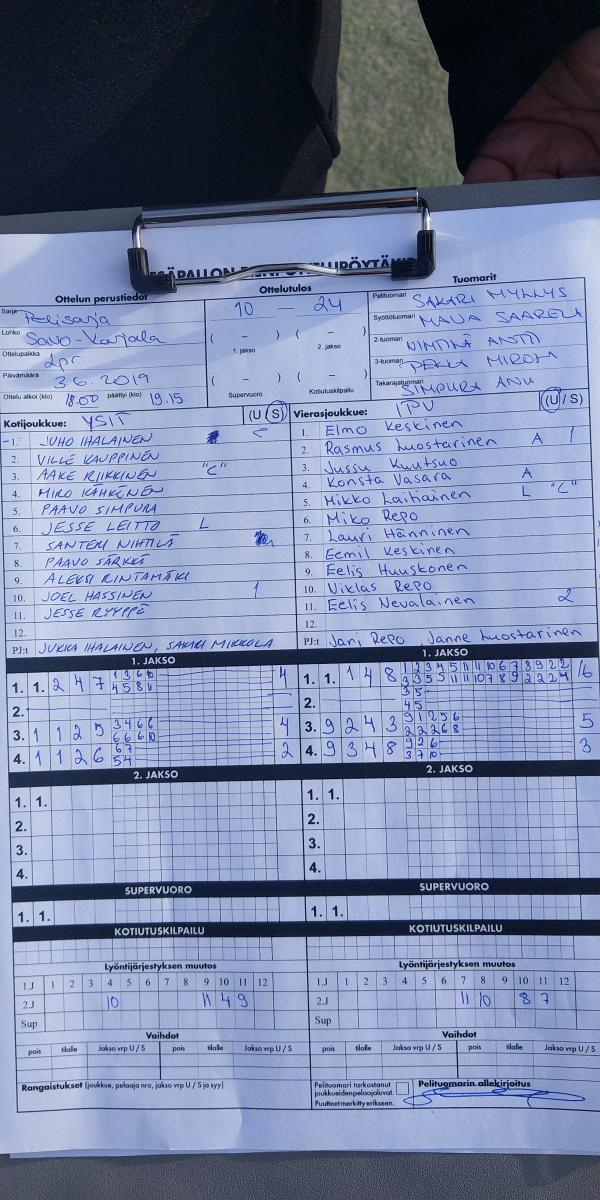 Ottelun perustiedot
Ottelutulos
Tuomarit
Sarja Pelisarja
Lohko Savo-Karjala
Ottelupaikka Lpr
Päivämäärä 3.6.2019
Ottelu alkoi (klo) 18.00 päättyi (klo) 19.15
10 — 24
( – ) ( – )
1. jakso 2. jakso
( – ) ( – )
Supervuoro Kotiutuskilpailu
Pelituomari SAKARI MYLLYS
Syöttötuomari
2-tuomari ANTTI
3-tuomari PEKKA
Takarajatuomari SIMPURA ANU
Kotijoukkue: YSIT (U / S)
1. JUHO IHALAINEN
2. VILLE KAUPPINEN
3. AAKE RIIKKINEN "C"
4. MIRO KÄHKÖNEN
5. PAAVO SIMPURA
6. JESSE LEITTO L
7. SANTERI NIHTILÄ
8. PAAVO SÄRKKÄ
9. ALEKSI RINTAMÄKI
10. JOEL HASSINEN 1
11. JESSE RYYPPÖ
12.
PJ:t JUKKA IHALAINEN, SAKARI MIKKOLA
Vierasjoukkue: IPV (U / S)
1. Elmo Keskinen
2. Rasmus Luostarinen A 1
3. Jussu Kuutsuo
4. Konsta Vasara A
5. Mikko Laihiainen L "C"
6. Miko Repo
7. Lauri Hänninen
8. Eemil Keskinen
9. Eelis Huuskonen
10. Niklas Repo
11. Eelis Nevalainen 2
12.
PJ:t Jari Repo Janne Luostarinen
1. JAKSO
1. 1. 2 4 7 4
2.
3. 1 1 2 5 4
4. 1 1 2 6 2
1. JAKSO
1. 1. 1 4 8 16
2.
3. 9 2 4 3 5
4. 9 3 4 8 3
2. JAKSO
1. 1.
2.
3.
4.
2. JAKSO
1. 1.
2.
3.
4.
SUPERVUORO
1. 1.
SUPERVUORO
1. 1.
KOTIUTUSKILPAILU
KOTIUTUSKILPAILU
Lyöntijärjestyksen muutos
1.J 1 2 3 4 5 6 7 8 9 10 11 12
2.J 10 11 4 9
Sup
Lyöntijärjestyksen muutos
1.J 1 2 3 4 5 6 7 8 9 10 11 12
2.J 11 10 8 7
Sup
Vaihdot
pois tilalle Jakso vrp U / S pois tilalle Jakso vrp U / S
Vaihdot
pois tilalle Jakso vrp U / S pois tilalle Jakso vrp U / S
Rangaistukset (joukkue, pelaaja nro, jakso vrp U / S ja syy)
Pelituomari tarkastanut
joukkueiden pelaajaluvat.
Puutteet merkitty erikseen.
Pelituomarin allekirjoitus